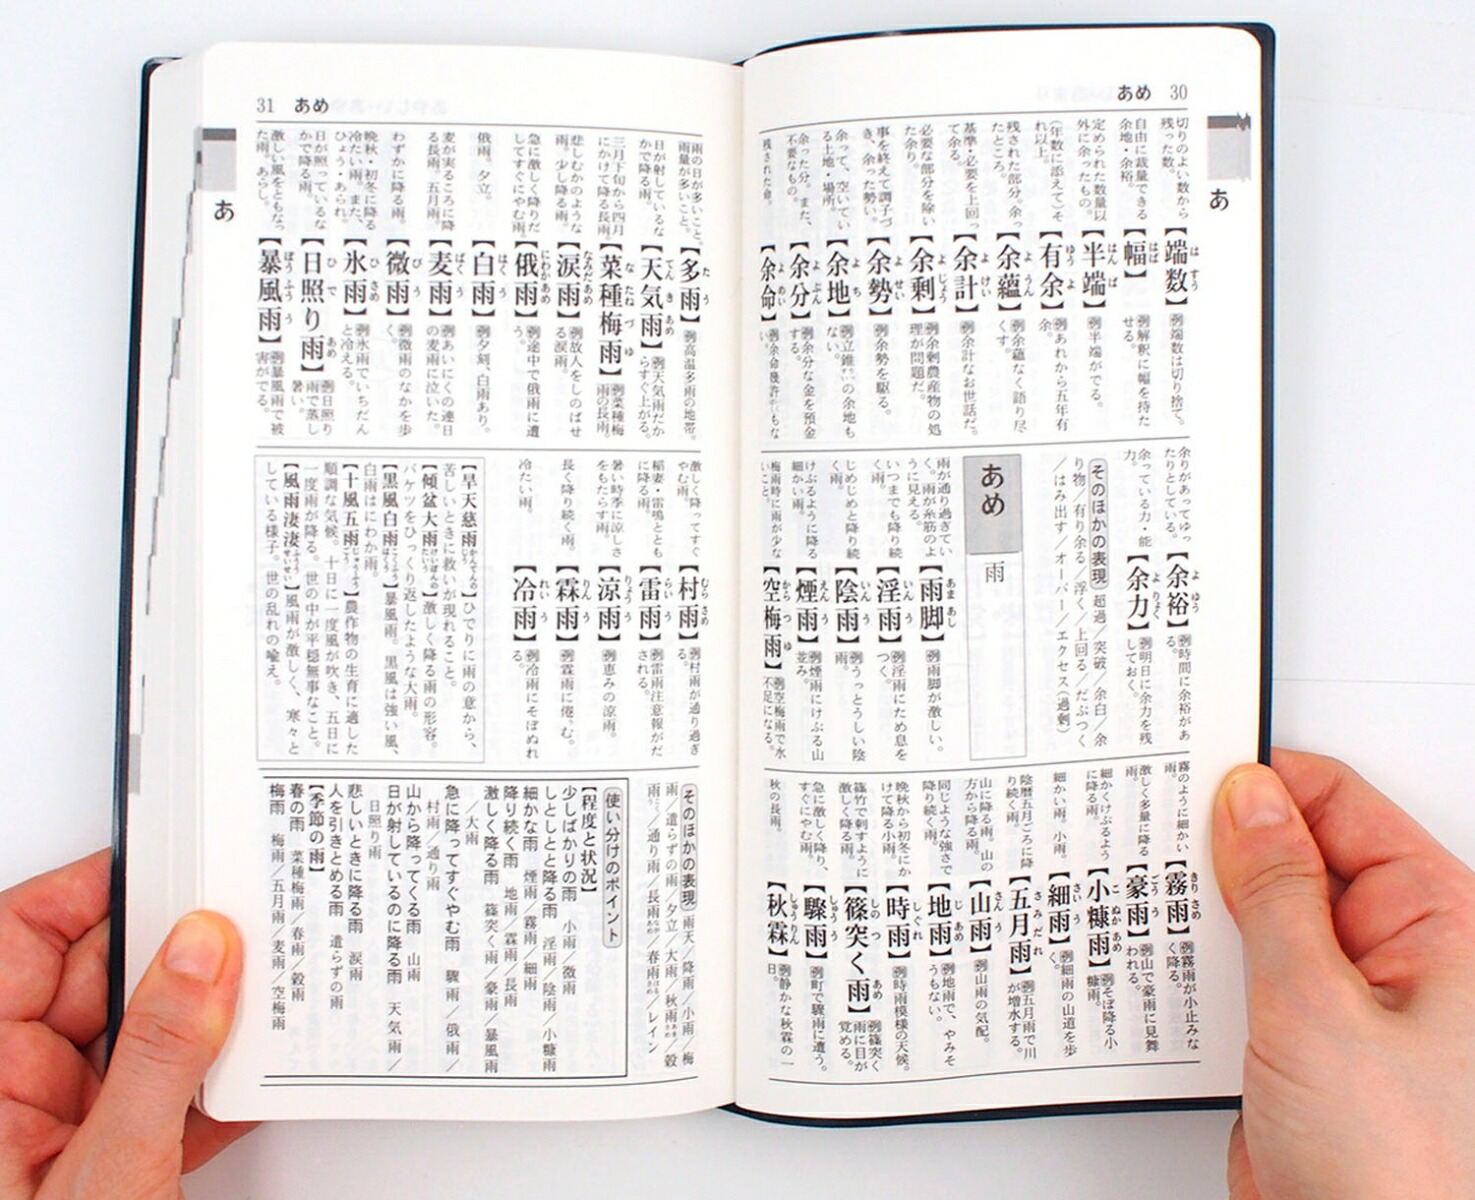 あめ 30
あ
切りのよい数から残った数。
【端数】はすう
例端数は切り捨て。
自由に裁量できる余地・余裕。
【幅】はば
例解釈に幅を持たせる。
定められた数量以外に余ったもの。
【半端】はんぱ
例半端がでる。
(年数に添えて)それ以上。
【有余】ゆうよ
例あれから五年有余。
残された部分。余ったところ。
【余蘊】ようん
例余蘊なく語り尽くす。
基準・必要を上回って余る。
【余計】よけい
例余計なお世話だ。
必要な部分を除いた余り。
【余剰】よじょう
例余剰農産物の処理が問題だ。
事を終えて調子づき、余った勢い。
【余勢】よせい
例余勢を駆る。
余って、空いている土地・場所。
【余地】よち
例立錐の余地もない。
余った分。また、不要なもの。
【余分】よぶん
例余分な金を預金する。
残された命。
【余命】よめい
例余命幾許もない。
余りがあってゆったりとしている。
【余裕】よゆう
例時間に余裕がある。
余っている力・能力。
【余力】よりょく
例明日に余力を残しておく。
そのほかの表現 超過／突破／余白／余り物／有り余る／浮く／上回る／だぶつく／はみ出す／オーバー／エクセス(過剰)
あめ 雨
雨が通り過ぎていく。雨が糸筋のように見える。
【雨脚】あまあし
例雨脚が激しい。
いつまでも降り続く雨。
【淫雨】いんう
例淫雨にため息をつく。
じめじめと降り続く雨。
【陰雨】いんう
例うっとうしい陰雨。
けぶるように降る細かい雨。
【煙雨】えんう
例煙雨にけぶる山並み。
梅雨時に雨が少ないこと。
【空梅雨】からつゆ
例空梅雨で水不足になる。
霧のように細かい雨。
【霧雨】きりさめ
例霧雨が小止みなく降る。
激しく多量に降る雨。
【豪雨】ごうう
例山で豪雨に見舞われる。
細かくけぶるように降る雨。
【小糠雨】こぬかあめ
例そぼ降る小糠雨。
細かい雨。小雨。
【細雨】さいう
例細雨の山道を歩く。
陰暦五月ごろに降り続く雨。
【五月雨】さみだれ
例五月雨で川が増水する。
山に降る雨。山の方から降る雨。
【山雨】さんう
例山雨の気配。
同じような強さで降り続く雨。
【地雨】じあめ
例地雨で、やみそうもない。
晩秋から初冬にかけて降る小雨。
【時雨】しぐれ
例時雨模様の天候。
篠竹で刺すように激しく降る雨。
【篠突く雨】しのつくあめ
例篠突く雨に目が覚める。
急に激しく降り、すぐにやむ雨。
【驟雨】しゅうう
例町で驟雨に遭う。
秋の長雨。
【秋霖】しゅうりん
例静かな秋霖の一日。
31 あめ
あ
雨の日が多いこと。雨量が多いこと。
【多雨】たう
例高温多雨の地帯。
日が射しているなかで降る雨。
【天気雨】てんきあめ
例天気雨だからすぐ上がる。
三月下旬から四月にかけて降る長雨。
【菜種梅雨】なたねづゆ
例菜種梅雨の長雨。
悲しむかのような雨。少し降る雨。
【涙雨】なみだあめ
例故人をしのばせる涙雨。
急に激しく降りだしてすぐにやむ雨。
【俄雨】にわかあめ
例途中で俄雨に遭う。
俄雨。夕立。
【白雨】はくう
例夕刻、白雨あり。
麦が実るころに降る長雨。五月雨。
【麦雨】ばくう
例あいにくの連日の麦雨に泣いた。
わずかに降る雨。
【微雨】びう
例微雨のなかを歩く。
晩秋・初冬に降る冷たい雨。また、ひょう・あられ。
【氷雨】ひさめ
例氷雨でいちだんと冷える。
日が照っているなかで降る雨。
【日照り雨】ひでりあめ
例日照り雨で蒸し暑い。
激しい風をともなった雨。あらし。
【暴風雨】ぼうふうう
例暴風雨で被害がでる。
激しく降ってすぐやむ雨。
【村雨】むらさめ
例村雨が通り過ぎる。
稲妻・雷鳴とともに降る雨。
【雷雨】らいう
例雷雨注意報がだされる。
暑い時季に涼しさをもたらす雨。
【涼雨】りょうう
例恵みの涼雨。
長く降り続く雨。
【霖雨】りんう
例霖雨に倦む。
冷たい雨。
【冷雨】れいう
例冷雨にそぼぬれる。
【旱天慈雨】かんてんのじう ひでりに雨の意から、苦しいときに救いが現れること。
【傾盆大雨】けいぼんのたいう 激しく降る雨の形容。バケツをひっくり返したような大雨。
【黒風白雨】こくふうはくう 暴風雨。黒風は強い風、白雨はにわか雨。
【十風五雨】じゅうふうごう 農作物の生育に適した順調な気候。十日に一度風が吹き、五日に一度雨が降る。世の中が平穏無事なこと。
【風雨凄凄】ふううせいせい 風雨が激しく、寒々としている様子。世の乱れの喩え。
そのほかの表現 雨天／降雨／小雨／梅雨／遣らずの雨／夕立／大雨／秋雨／穀雨／通り雨／長雨／春雨／レイン
使い分けのポイント
【程度と状況】
少しばかりの雨 小雨／微雨
しとしとと降る雨 淫雨／陰雨／小糠雨
細かな雨 煙雨／霧雨／細雨
降り続く雨 地雨／霖雨／長雨
激しく降る雨 篠突く雨／豪雨／暴風雨／大雨
急に降ってすぐやむ雨 驟雨／俄雨／村雨／通り雨
山から降ってくる雨 山雨
日が射しているのに降る雨 天気雨／日照り雨
悲しいときに降る雨 涙雨
人を引きとめる雨 遣らずの雨
【季節の雨】
春の雨 菜種梅雨／春雨／穀雨
梅雨 梅雨／五月雨／麦雨／空梅雨